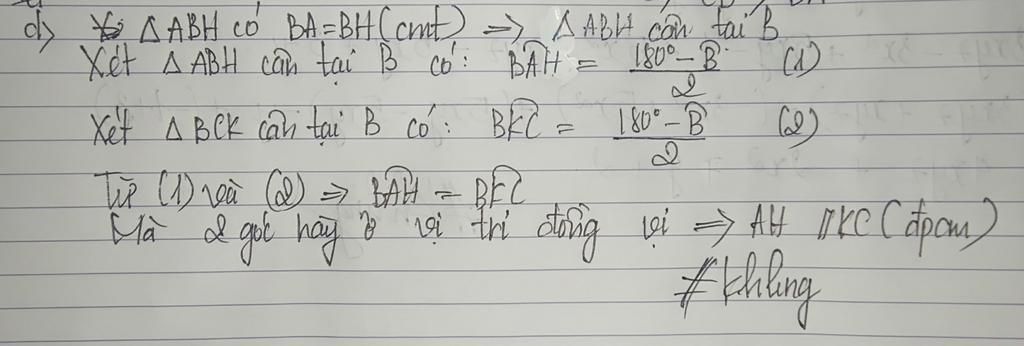 d) Δ ABH có BA = BH (cmt) => Δ ABH cân tại B
Xét Δ ABH cân tại B có: BAH = (180° - B)/2 (1)
Xét Δ BCK cân tại B có: BKC = (180° - B)/2 (2)
Từ (1) và (2) => BAH = BKC
Mà 2 góc này ở vị trí đồng vị => AH // KC (đpcm)